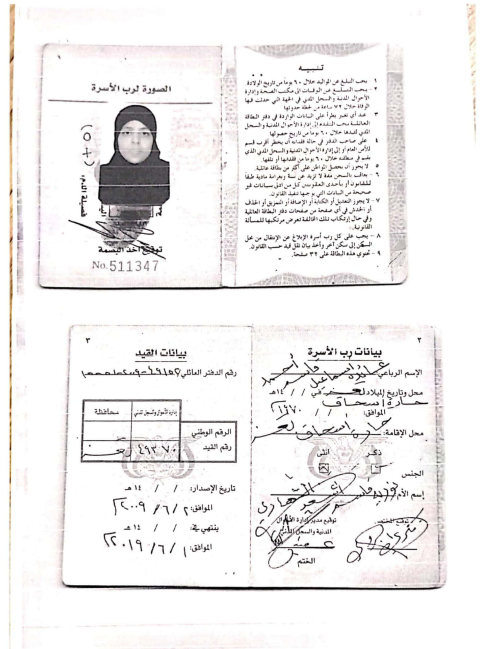 الصورة لرب الأسرة
(+ O)
فصيلة الدم
توقيع اخذ البصمة
No. 511347
تنبيه
١ - يجب التبليغ عن المواليد خلال ٦٠ يوما من تاريخ الولادة
٢ - يجب التبليغ عن الوفيات إلى مكتب الصحة وإدارة
الأحوال المدنية والسجل المدني في الجهة التي حدثت فيها
الوفاة خلال ٧٢ ساعة من لحظة حدوثها
٣ - عند أي تغير يطرأ على البيانات الواردة في دفتر البطاقة
العائلية يجب التقدم إلى إدارة الأحوال المدنية والسجل
المدني لقيدها خلال ٦٠ يوما من تاريخ حصولها
٤ - على صاحب الدفتر في حالة فقدانه أن يخطر أقرب قسم
للأمن العام أو إلى إدارة الأحوال المدنية والسجل المدني الذي
يقيم في منطقته خلال ٦٠ يوما من فقدانها أو تلفها
٥ - لا يجوز أن يحصل المواطن على أكثر من بطاقة عائلية
٦ - يعاقب بالسجن مدة لا تزيد عن سنة وبغرامة مادية طبقا
للقانون أو بإحدى العقوبتين كل من أدلى ببيانات غير
صحيحة من البيانات التي يوجبها تنفيذ القانون
٧ - لا يجوز التعديل أو الكتابة أو الإضافة أو التمزيق أو الحذف
أو الخدش في أي صفحة من صفحات دفتر البطاقة العائلية
وفي حال إرتكاب تلك المخالفة تعرض مرتكبها للمسألة
القانونية
٨ - يجب على كل رب أسرة الإبلاغ عن الإنتقال من محل
السكن إلى سكن آخر وأخذ بيان نقل قيد حسب القانون
٩ - تحتوي هذه البطاقة على ٣٢ صفحة
٢
بيانات رب الأسرة
الإسم الرباعي
محل وتاريخ الميلاد تعز في / / ١٤هـ
حارة إسحاق الموافق: / / ١٩٧٠
محل الإقامة: حارة إسحاق تعز
ذكر أنثى
الجنس
إسم الأم
توقيع المختص
توقيع مدير إدارة الأحوال
المدنية والسجل المدني
الختم
٣
بيانات القيد
رقم الدفتر العائلي
إدارة الأحوال والسجل المدني محافظة
الرقم الوطني
رقم القيد ٤٩٣٧٠ تعز
تاريخ الإصدار: / / ١٤هـ
الموافق: ٢ / ٦ / ٢٠٠٩
ينتهي في / / ١٤هـ
الموافق: ١ / ٦ / ٢٠١٩